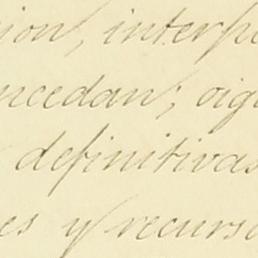 ion, interp
ncedan; oig
definitivas
es y recurso